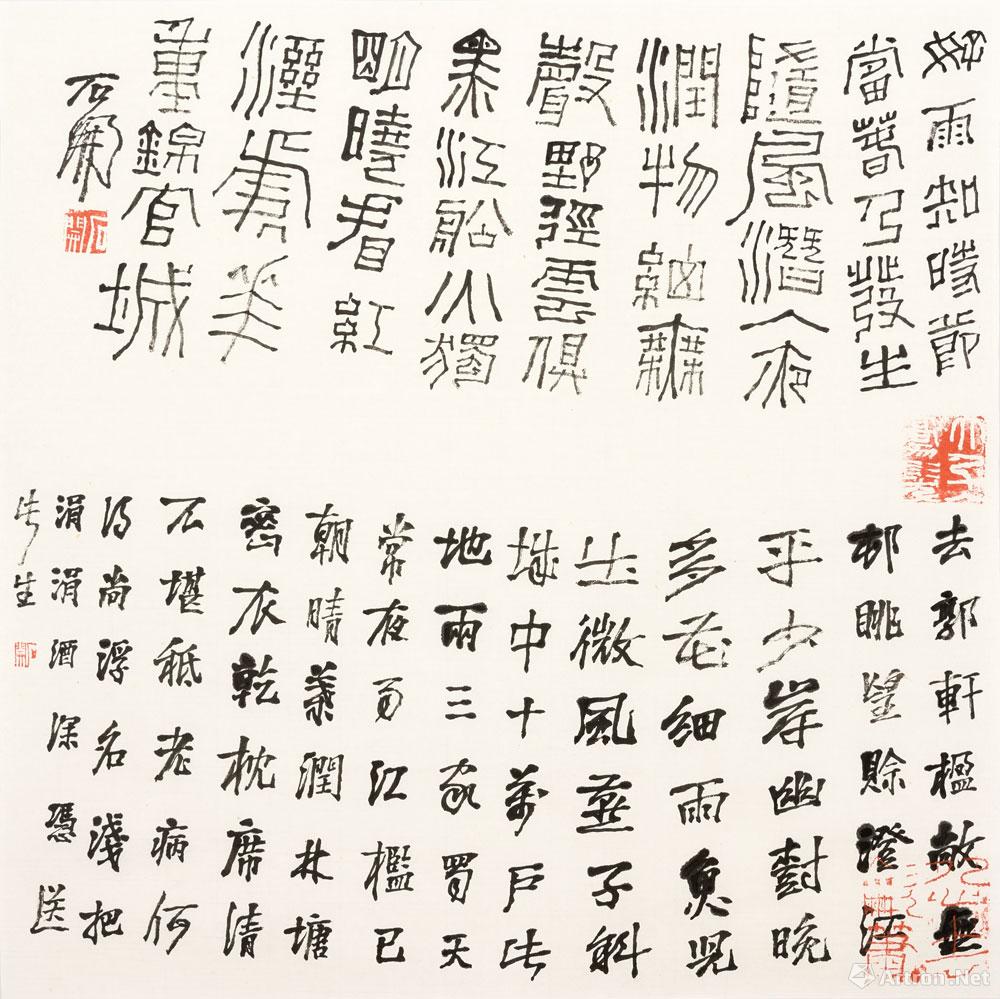 好雨知時節
當春乃發生
隨風潛入夜
潤物細無
聲野徑雲俱
黑江船火獨
明曉看紅
溼處花
重錦官城
石開
石開
去郭軒楹敞無
邨眺望賒澄江
平少岸幽對晚
多花細雨魚兒
出微風燕子斜
城中十萬戶此
地兩三家蜀天
常夜雨江檻已
朝晴葉潤林塘
密衣乾枕席清
不堪秖老病何
得尚浮名淺把
涓涓酒深憑送
此生
Artron.Net